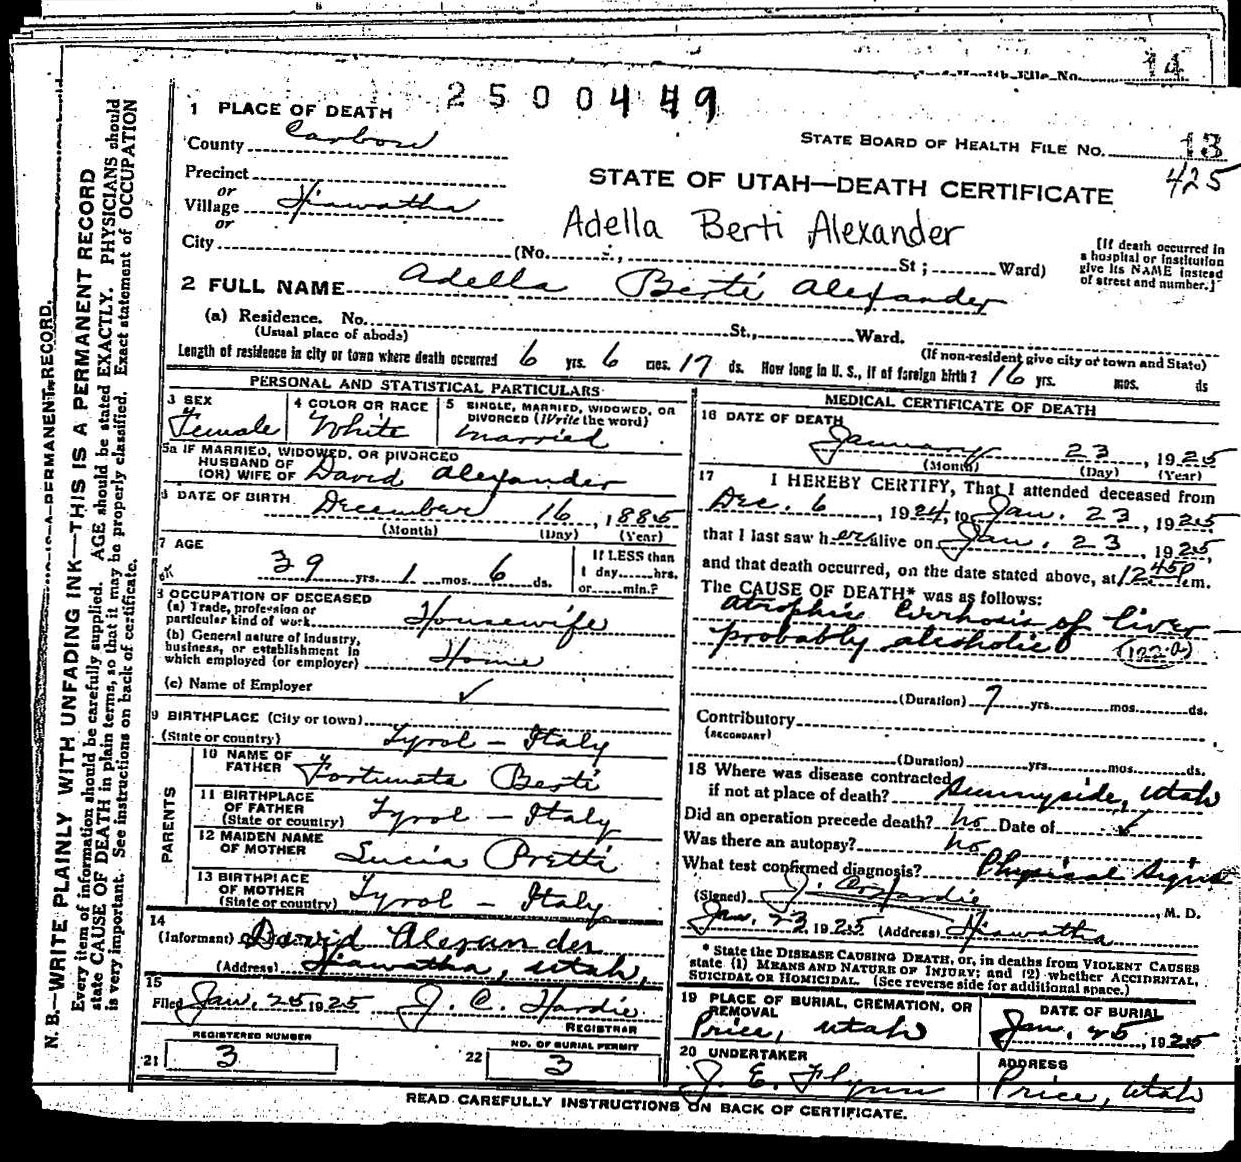 14
2500449
1 PLACE OF DEATH
County Carbon
STATE BOARD OF HEALTH FILE NO. 13
425
Precinct
or
Village Hiawatha
or
City (No. St; Ward)
STATE OF UTAH—DEATH CERTIFICATE
Adella Berti Alexander
[If death occurred in
a hospital or institution
give its NAME instead
of street and number.]
2 FULL NAME Adella Berti Alexander
(a) Residence. No. St., Ward.
(Usual place of abode)
(If non-resident give city or town and State)
Length of residence in city or town where death occurred 6 yrs. 6 mos. 17 ds. How long in U. S., if of foreign birth? 16 yrs. mos. ds
PERSONAL AND STATISTICAL PARTICULARS
3 SEX
Female
4 COLOR OR RACE
White
5 SINGLE, MARRIED, WIDOWED, OR
DIVORCED (Write the word)
Married
5a IF MARRIED, WIDOWED, OR DIVORCED
HUSBAND OF
(OR) WIFE OF David Alexander
6 DATE OF BIRTH
December 16, 1885
(Month) (Day) (Year)
7 AGE
39 yrs. 1 mos. 6 ds.
If LESS than
1 day hrs.
or min.?
8 OCCUPATION OF DECEASED
(a) Trade, profession or
particular kind of work Housewife
(b) General nature of industry,
business, or establishment in
which employed (or employer) Home
(c) Name of Employer ✓
9 BIRTHPLACE (City or town)
(State or country) Tyrol - Italy
PARENTS
10 NAME OF
FATHER Fortunata Berti
11 BIRTHPLACE
OF FATHER
(State or country) Tyrol - Italy
12 MAIDEN NAME
OF MOTHER Lucia Pretti
13 BIRTHPLACE
OF MOTHER
(State or country) Tyrol - Italy
14
(Informant) David Alexander
(Address) Hiawatha, Utah,
15
Filed Jan. 25 1925 J. C. Hardie
REGISTRAR
REGISTERED NUMBER
21 3
NO. OF BURIAL PERMIT
22 3
MEDICAL CERTIFICATE OF DEATH
16 DATE OF DEATH
January 23, 1925
(Month) (Day) (Year)
17 I HEREBY CERTIFY, That I attended deceased from
Dec. 6, 1924, to Jan. 23, 1925
that I last saw her alive on Jan. 23, 1925
and that death occurred, on the date stated above, at 12 45 P m.
The CAUSE OF DEATH* was as follows:
Atrophic Cirrhosis of liver
probably alcoholic (122-a)
(Duration) 7 yrs. mos. ds.
Contributory
(SECONDARY)
(Duration) yrs. mos. ds.
18 Where was disease contracted
if not at place of death? Sunnyside, Utah
Did an operation precede death? No Date of ✓
Was there an autopsy? No
What test confirmed diagnosis? Physical Signs
(Signed) J. C. Hardie, M. D.
Jan. 23 1925 (Address) Hiawatha
* State the DISEASE CAUSING DEATH, or, in deaths from VIOLENT CAUSES
state (1) MEANS AND NATURE OF INJURY; and (2) whether ACCIDENTAL,
SUICIDAL OR HOMICIDAL. (See reverse side for additional space.)
19 PLACE OF BURIAL, CREMATION, OR
REMOVAL
Price, Utah
DATE OF BURIAL
Jan. 25, 1925
20 UNDERTAKER
J. E. Flynn
ADDRESS
Price, Utah
READ CAREFULLY INSTRUCTIONS ON BACK OF CERTIFICATE.
N. B.—WRITE PLAINLY WITH UNFADING INK—THIS IS A PERMANENT RECORD
Every item of information should be carefully supplied. AGE should be stated EXACTLY. PHYSICIANS should
state CAUSE OF DEATH in plain terms, so that it may be properly classified. Exact statement of OCCUPATION
is very important. See instructions on back of certificate.